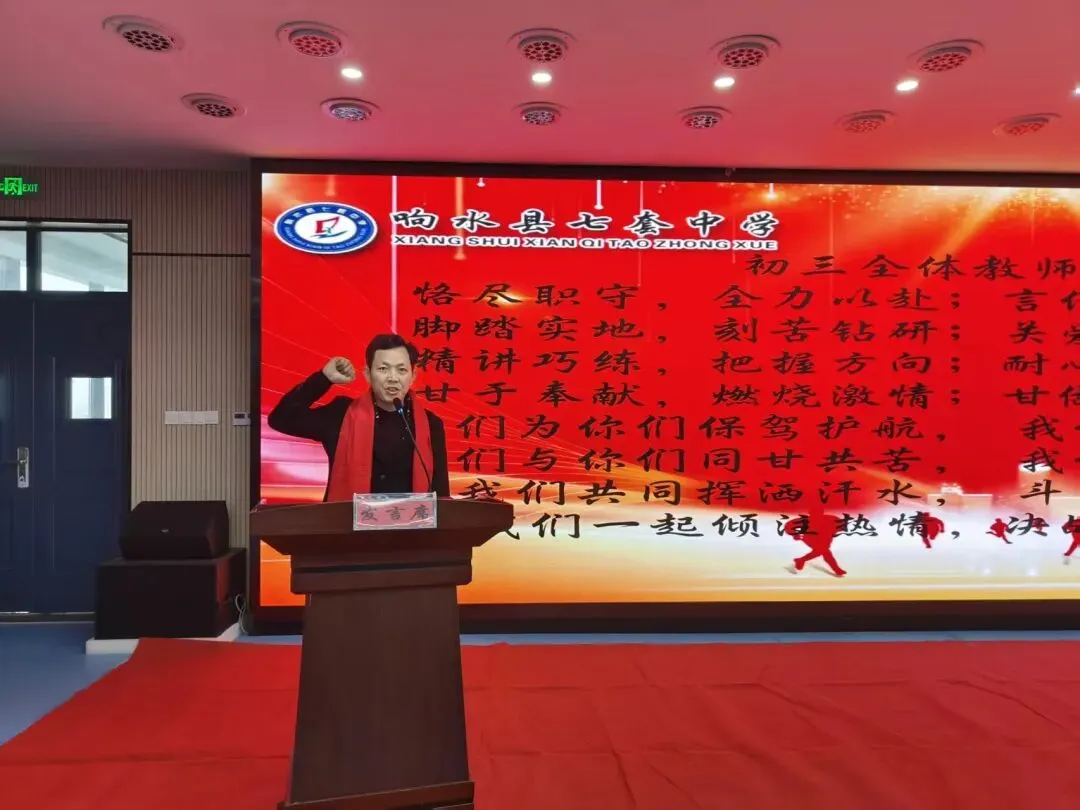 EXIT
响水县七套中学
XIANG SHUI XIAN QI TAO ZHONG XUE
初三全体教师
恪尽职守，全力以赴；言传
脚踏实地，刻苦钻研；关爱
精讲巧练，把握方向；耐心
甘于奉献，燃烧激情；甘
们为你们保驾护航，我
们与你们同甘共苦，我
我们共同挥洒汗水，斗
我们一起倾注热情，决战
发言席